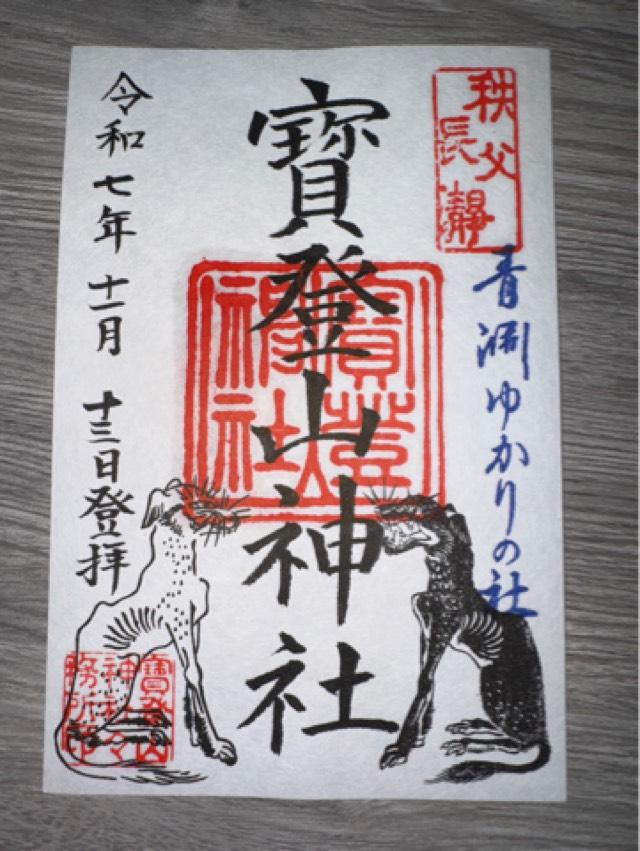 秩父
長瀞
青淵ゆかりの社
寳登山神社
寳登山
神社
令和七年十一月十三日登拝
寳登山
神社々
務所印